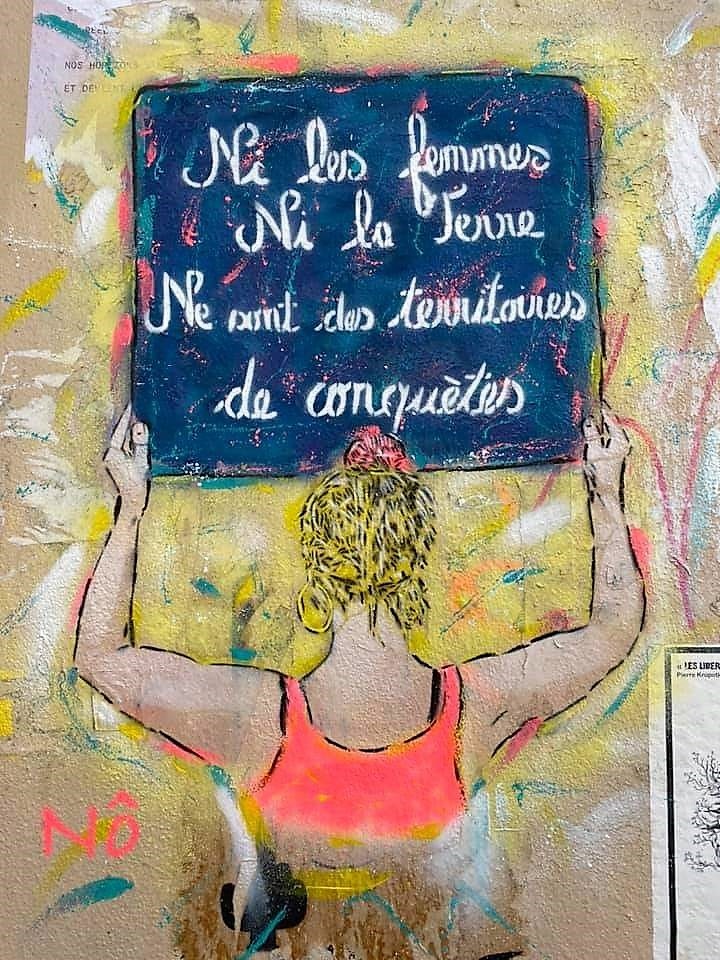 NOS HORIZONS
ET DEVIENT
Ni les femmes
Ni la Terre
Ne sont des territoires
de conquètés
« LES LIBER
Pierre Kropotk
Nô